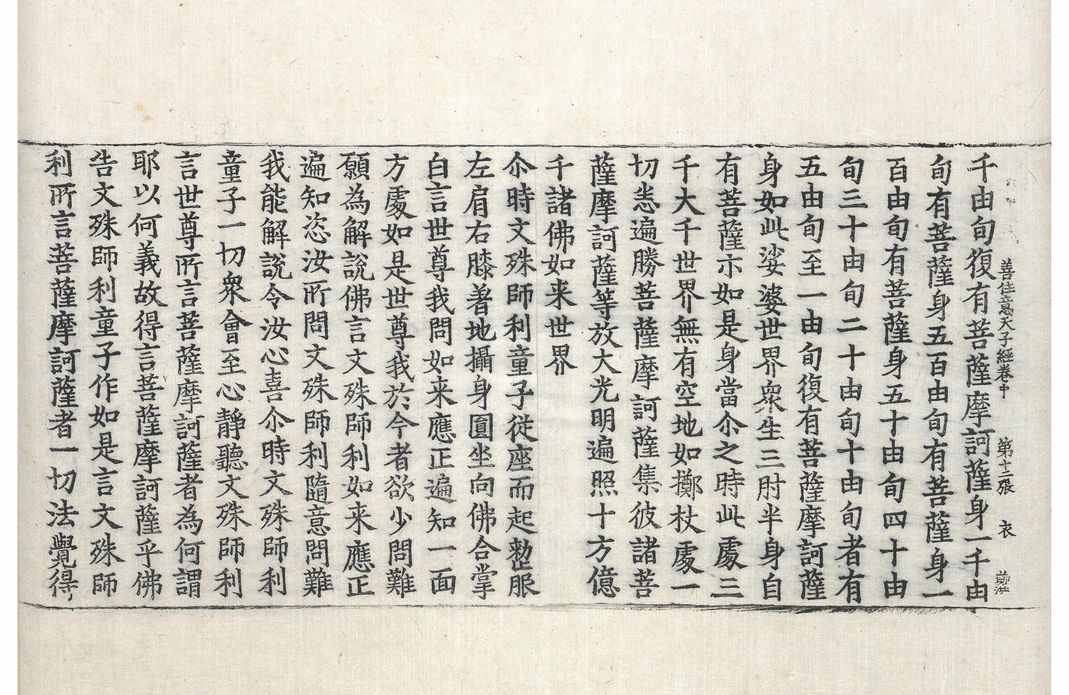 善住意天子經卷中 第十二張 衣
千由旬復有菩薩摩訶薩身一千由
旬有菩薩身五百由旬有菩薩身一
百由旬有菩薩身五十由旬四十由
旬三十由旬二十由旬十由旬者有
五由旬至一由旬復有菩薩摩訶薩
身如此娑婆世界衆生三肘半身自
有菩薩亦如是身當尒之時此處三
千大千世界無有空地如擲杖處一
切悉遍勝菩薩摩訶薩集彼諸菩
薩摩訶薩等放大光明遍照十方億
千諸佛如来世界
尒時文殊師利童子從座而起整服
左肩右膝著地攝身圓坐向佛合掌
白言世尊我問如来應正遍知一面
方處如是世尊我於今者欲少問難
願為解說佛言文殊師利如来應正
遍知恣汝所問文殊師利隨意問難
我能解說令汝心喜尒時文殊師利
童子一切衆會至心靜聽文殊師利
言世尊所言菩薩摩訶薩者為何謂
耶以何義故得言菩薩摩訶薩乎佛
告文殊師利童子作如是言文殊師
利所言菩薩摩訶薩者一切法覺得